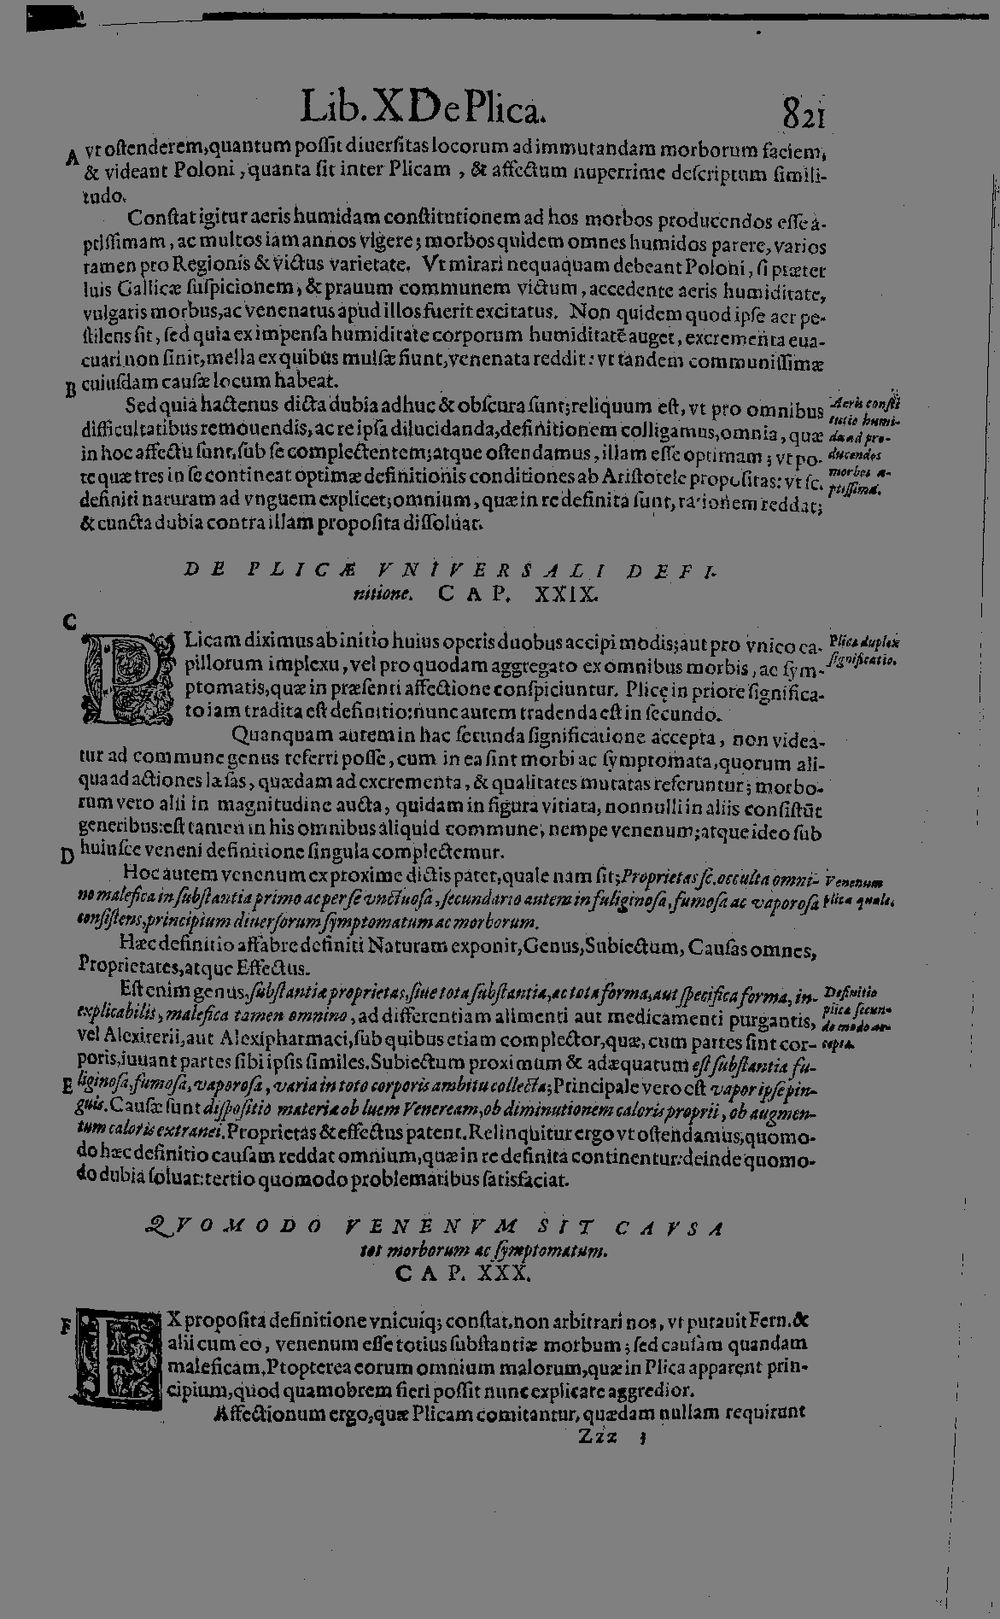 Lib. X De Plica. 821
A vt ostenderem, quantum possit diuersitas locorum ad immutandam morborum faciem,
& videant Poloni, quanta sit inter Plicam, & affectum nuperrime descriptum simili-
tudo.
Constat igitur aeris humidam constitutionem ad hos morbos producendos esse a-
ptissimam, ac multos iam annos vigere; morbos quidem omnes humidos parere, varios
tamen pro Regionis & victus varietate. Vt mirari nequaquam debeant Poloni, si præter
luis Gallicæ suspicionem, & prauum communem victum, accedente aeris humiditate,
vulgaris morbus, ac venenatus apud illos fuerit excitatus. Non quidem quod ipse aer pe-
stilens sit, sed quia ex impensa humiditate corporum humiditatē auget, excrementa eua-
cuari non sinit, mella ex quibus mulsæ fiunt, venenata reddit: vt tandem communissimæ
B cuiusdam causæ locum habeat.
Sed quia hactenus dicta dubia adhuc & obscura sunt; reliquum est, vt pro omnibus
difficultatibus remouendis, ac re ipsa dilucidanda, definitionem colligamus, omnia, quæ
in hoc affectu sunt, sub se complectentem; atque ostendamus, illam esse optimam; vt po-
te quæ tres in se contineat optimæ definitionis conditiones ab Aristotele propositas: vt sc.
definiti naturam ad vnguem explicet; omnium, quæ in re definita sunt, rationem reddat;
& cuncta dubia contra illam proposita dissoluat.
Aeris consti
tutio humi-
da ad pro-
ducendos
morbos a-
ptissima.
DE PLICÆ VNIVERSALI DEFI-
nitione. CAP. XXIX.
C
PLicam diximus ab initio huius operis duobus accipi modis; aut pro vnico ca-
pillorum implexu, vel pro quodam aggregato ex omnibus morbis, ac sym-
ptomatis, quæ in præsenti affectione conspiciuntur. Plicę in priore significa-
to iam tradita est definitio: nunc autem tradenda est in secundo.
Plica duplex
significatio.
Quanquam autem in hac secunda significatione accepta, non videa-
tur ad commune genus referri posse, cum in ea sint morbi ac symptomata, quorum ali-
qua ad actiones læsas, quædam ad excrementa, & qualitates mutatas referuntur; morbo-
rum vero alii in magnitudine aucta, quidam in figura vitiata, nonnulli in aliis consistūt
generibus: est tamen in his omnibus aliquid commune, nempe venenum; atque ideo sub
D huiusce veneni definitione singula complectemur.
Hoc autem venenum ex proxime dictis patet, quale nam sit; Proprietas sc. occulta omni-
no malefica in substantia primo ac per se vnctuosa, secundario autem in fuliginosa, fumosa ac vaporosa
consistens, principium diuersorum symptomatum ac morborum.
Venenum
plica quale.
Hæc definitio affabre definiti Naturam exponit, Genus, Subiectum, Causas omnes,
Proprietates, atque Effectus.
Est enim genus, substantia proprietas, siue tota substantia, ac tota forma, aut specifica forma, in-
explicabilis, malefica tamen omnino, ad differentiam alimenti aut medicamenti purgantis,
vel Alexiterii, aut Alexipharmaci, sub quibus etiam complector, quæ, cum partes sint cor-
poris, iuuant partes sibi ipsis similes. Subiectum proximum & adæquatum est substantia fu-
E liginosa, fumosa, vaporosa, varia in toto corporis ambitu collecta; Principale vero est vapor ipse pin-
guis. Causæ sunt dispositio materia ob luem Veneream, ob diminutionem caloris proprii, ob augmen-
tum caloris extranei. Proprietas & effectus patent. Relinquitur ergo vt ostendamus, quomo-
do hæc definitio causam reddat omnium, quæ in re definita continentur: deinde quomo-
do dubia soluat: tertio quomodo problematibus satisfaciat.
Definitio
plica secun-
do modo ac-
cepta.
QVOMODO VENENVM SIT CAVSA
tot morborum ac symptomatum.
CAP. XXX.
F EX proposita definitione vnicuiq; constat, non arbitrari nos, vt putauit Fern. &
alii cum eo, venenum esse totius substantiæ morbum; sed causam quandam
maleficam. Ptopterea eorum omnium malorum, quæ in Plica apparent prin-
cipium, quod quamobrem fieri possit nunc explicare aggredior.
Affectionum ergo, quæ Plicam comitantur, quædam nullam requirunt
Zzz 3